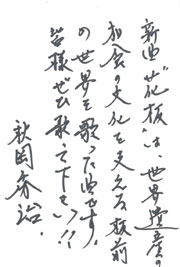 新曲「花板」は、世界遺産の
和食の文化を支える板前
の世界を歌った曲です。
皆様ぜひ歌って下さい!!
秋岡秀治